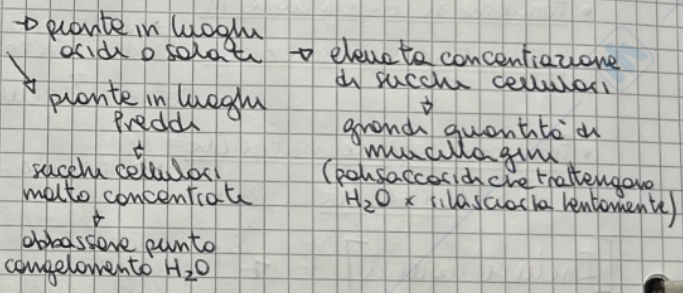 → piante in luoghi
acidi o salati → elevata concentrazione
di succhi cellulari
↓
grandi quantità di
mucillagini
(polisaccaridi che trattengono
H₂O x rilasciarla lentamente)
↘ piante in luoghi
freddi
↓
succhi cellulari
molto concentrati
↓
abbassare punto
congelamento H₂O